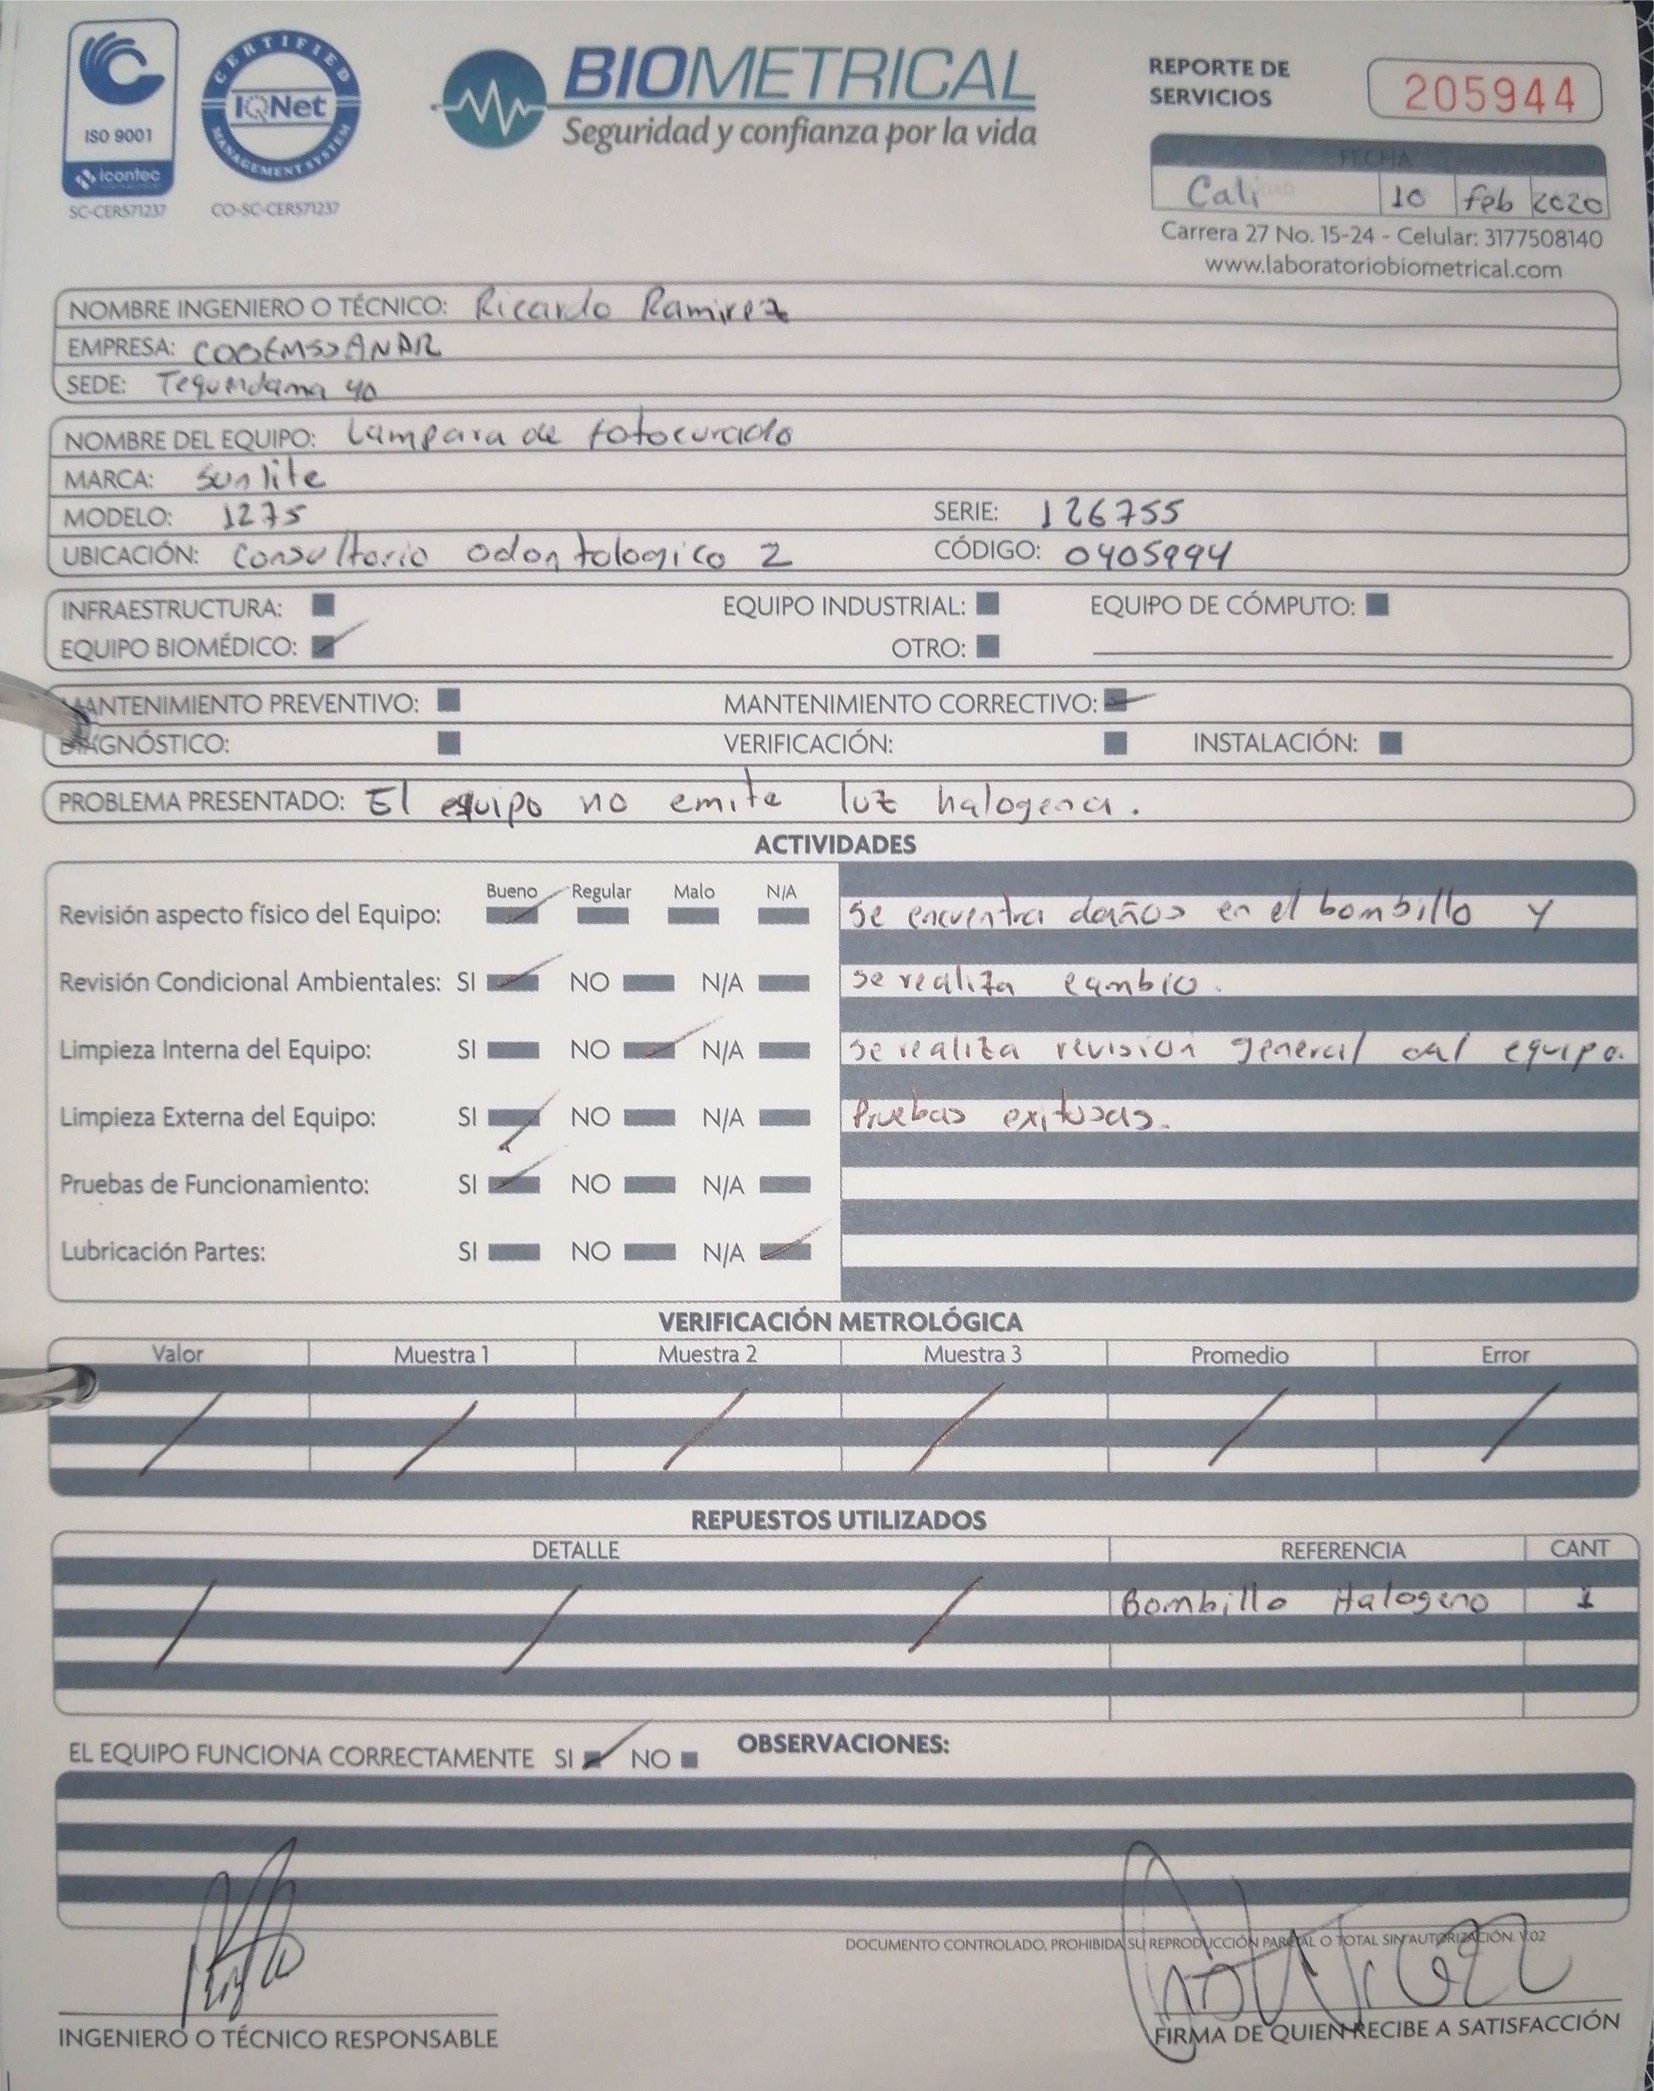 ISO 9001
icontec
SC-CER571237
CERTIFIED
IQNet
MANAGEMENT SYSTEM
CO-SC-CER571237
BIOMETRICAL
Seguridad y confianza por la vida
REPORTE DE
SERVICIOS
205944
FECHA
Cali 10 feb 2020
Carrera 27 No. 15-24 - Celular: 3177508140
www.laboratoriobiometrical.com
NOMBRE INGENIERO O TÉCNICO: Ricardo Ramirez
EMPRESA: COOEMSSANAR
SEDE: Tequendama 40
NOMBRE DEL EQUIPO: Lampara de fotocurado
MARCA: Sunlite
MODELO: 1275 SERIE: 126755
UBICACIÓN: Consultorio odontologico 2 CÓDIGO: 0405994
INFRAESTRUCTURA: EQUIPO INDUSTRIAL: EQUIPO DE CÓMPUTO:
EQUIPO BIOMÉDICO: OTRO:
MANTENIMIENTO PREVENTIVO: MANTENIMIENTO CORRECTIVO:
DIAGNÓSTICO: VERIFICACIÓN: INSTALACIÓN:
PROBLEMA PRESENTADO: El equipo no emite luz halogena.
ACTIVIDADES
Bueno Regular Malo N/A
Revisión aspecto físico del Equipo: Se encuentra daños en el bombillo y
Revisión Condicional Ambientales: SI NO N/A se realiza cambio.
Limpieza Interna del Equipo: SI NO N/A se realiza revisión general del equipo.
Limpieza Externa del Equipo: SI NO N/A Pruebas exitosas.
Pruebas de Funcionamiento: SI NO N/A
Lubricación Partes: SI NO N/A
VERIFICACIÓN METROLÓGICA
Valor Muestra 1 Muestra 2 Muestra 3 Promedio Error
REPUESTOS UTILIZADOS
DETALLE REFERENCIA CANT
Bombillo Halogeno 1
EL EQUIPO FUNCIONA CORRECTAMENTE SI NO OBSERVACIONES:
DOCUMENTO CONTROLADO, PROHIBIDA SU REPRODUCCIÓN PARCIAL O TOTAL SIN AUTORIZACIÓN. V.02
INGENIERO O TÉCNICO RESPONSABLE
FIRMA DE QUIEN RECIBE A SATISFACCIÓN